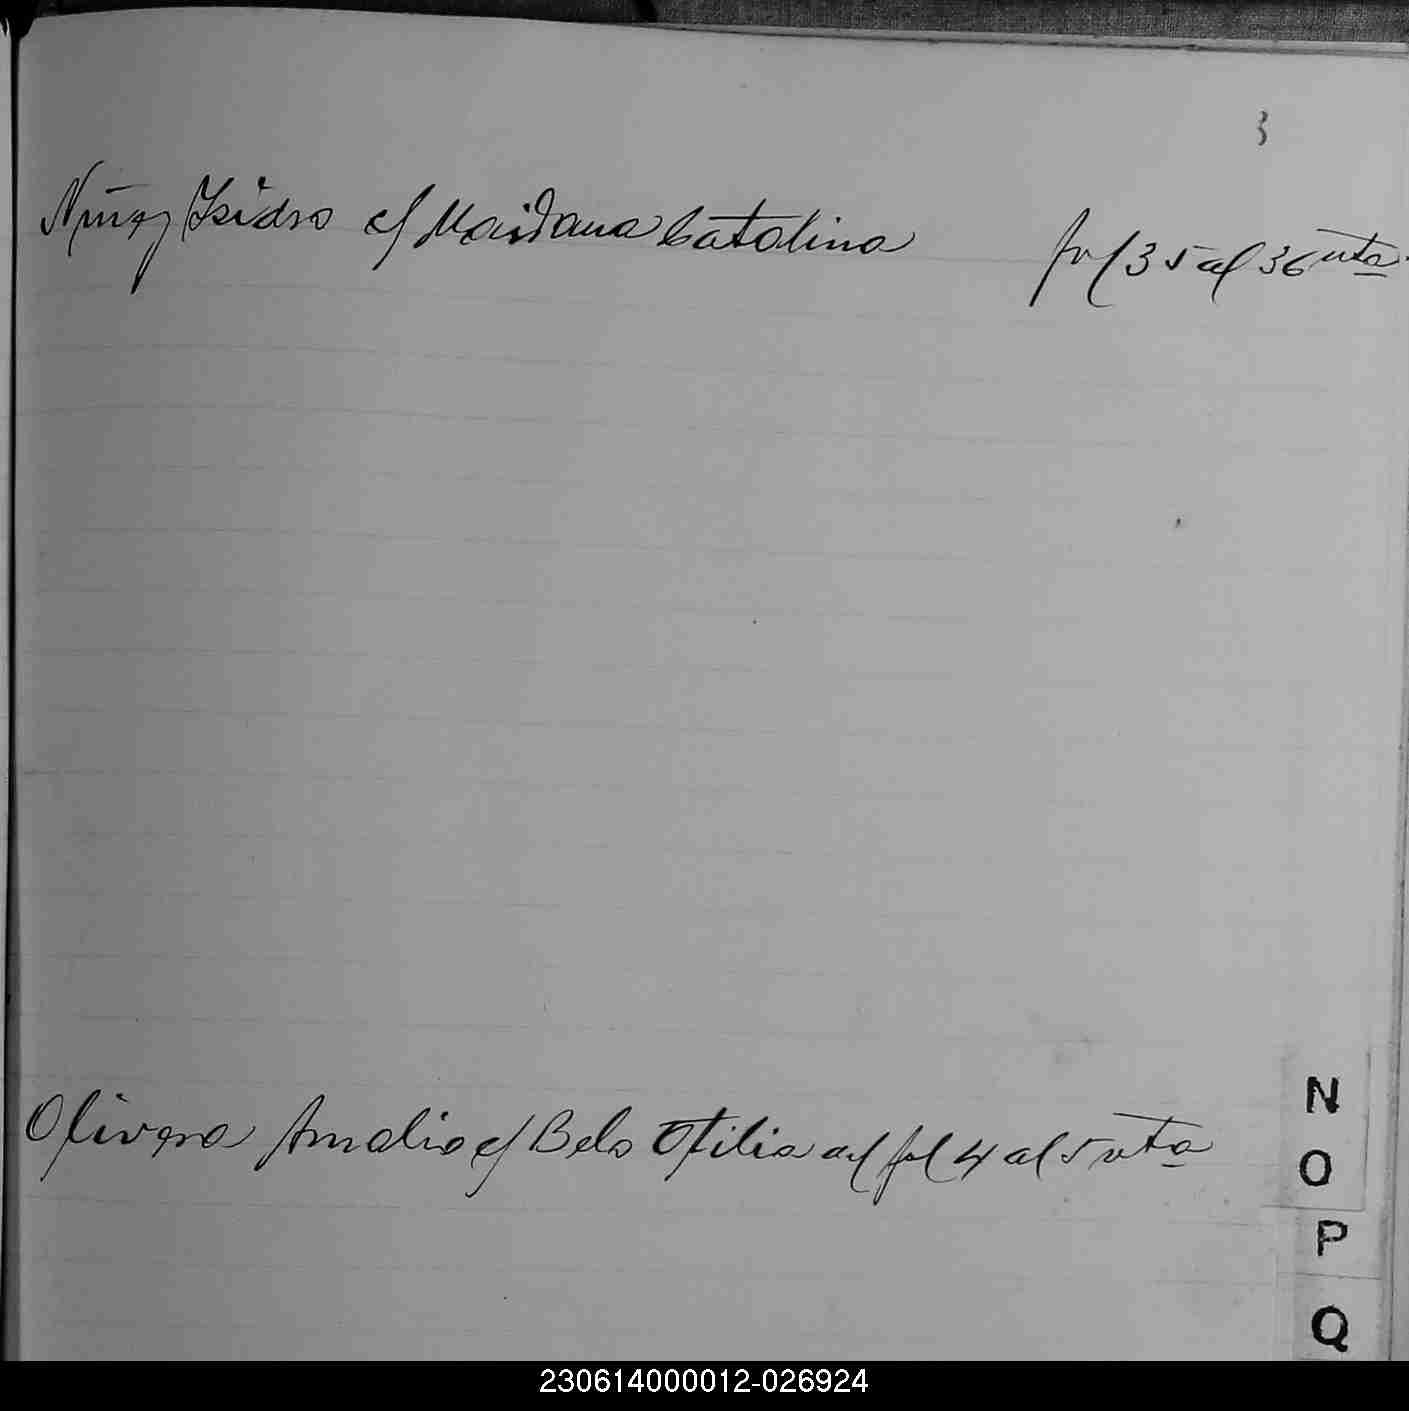 3
Nuñez Isidro c/ Maidana Catalina fol 35 al 36 vta
Olivera Amalio c/ Belo Otilia al fol 4 al 5 vta
N
O
P
Q
230614000012-026924